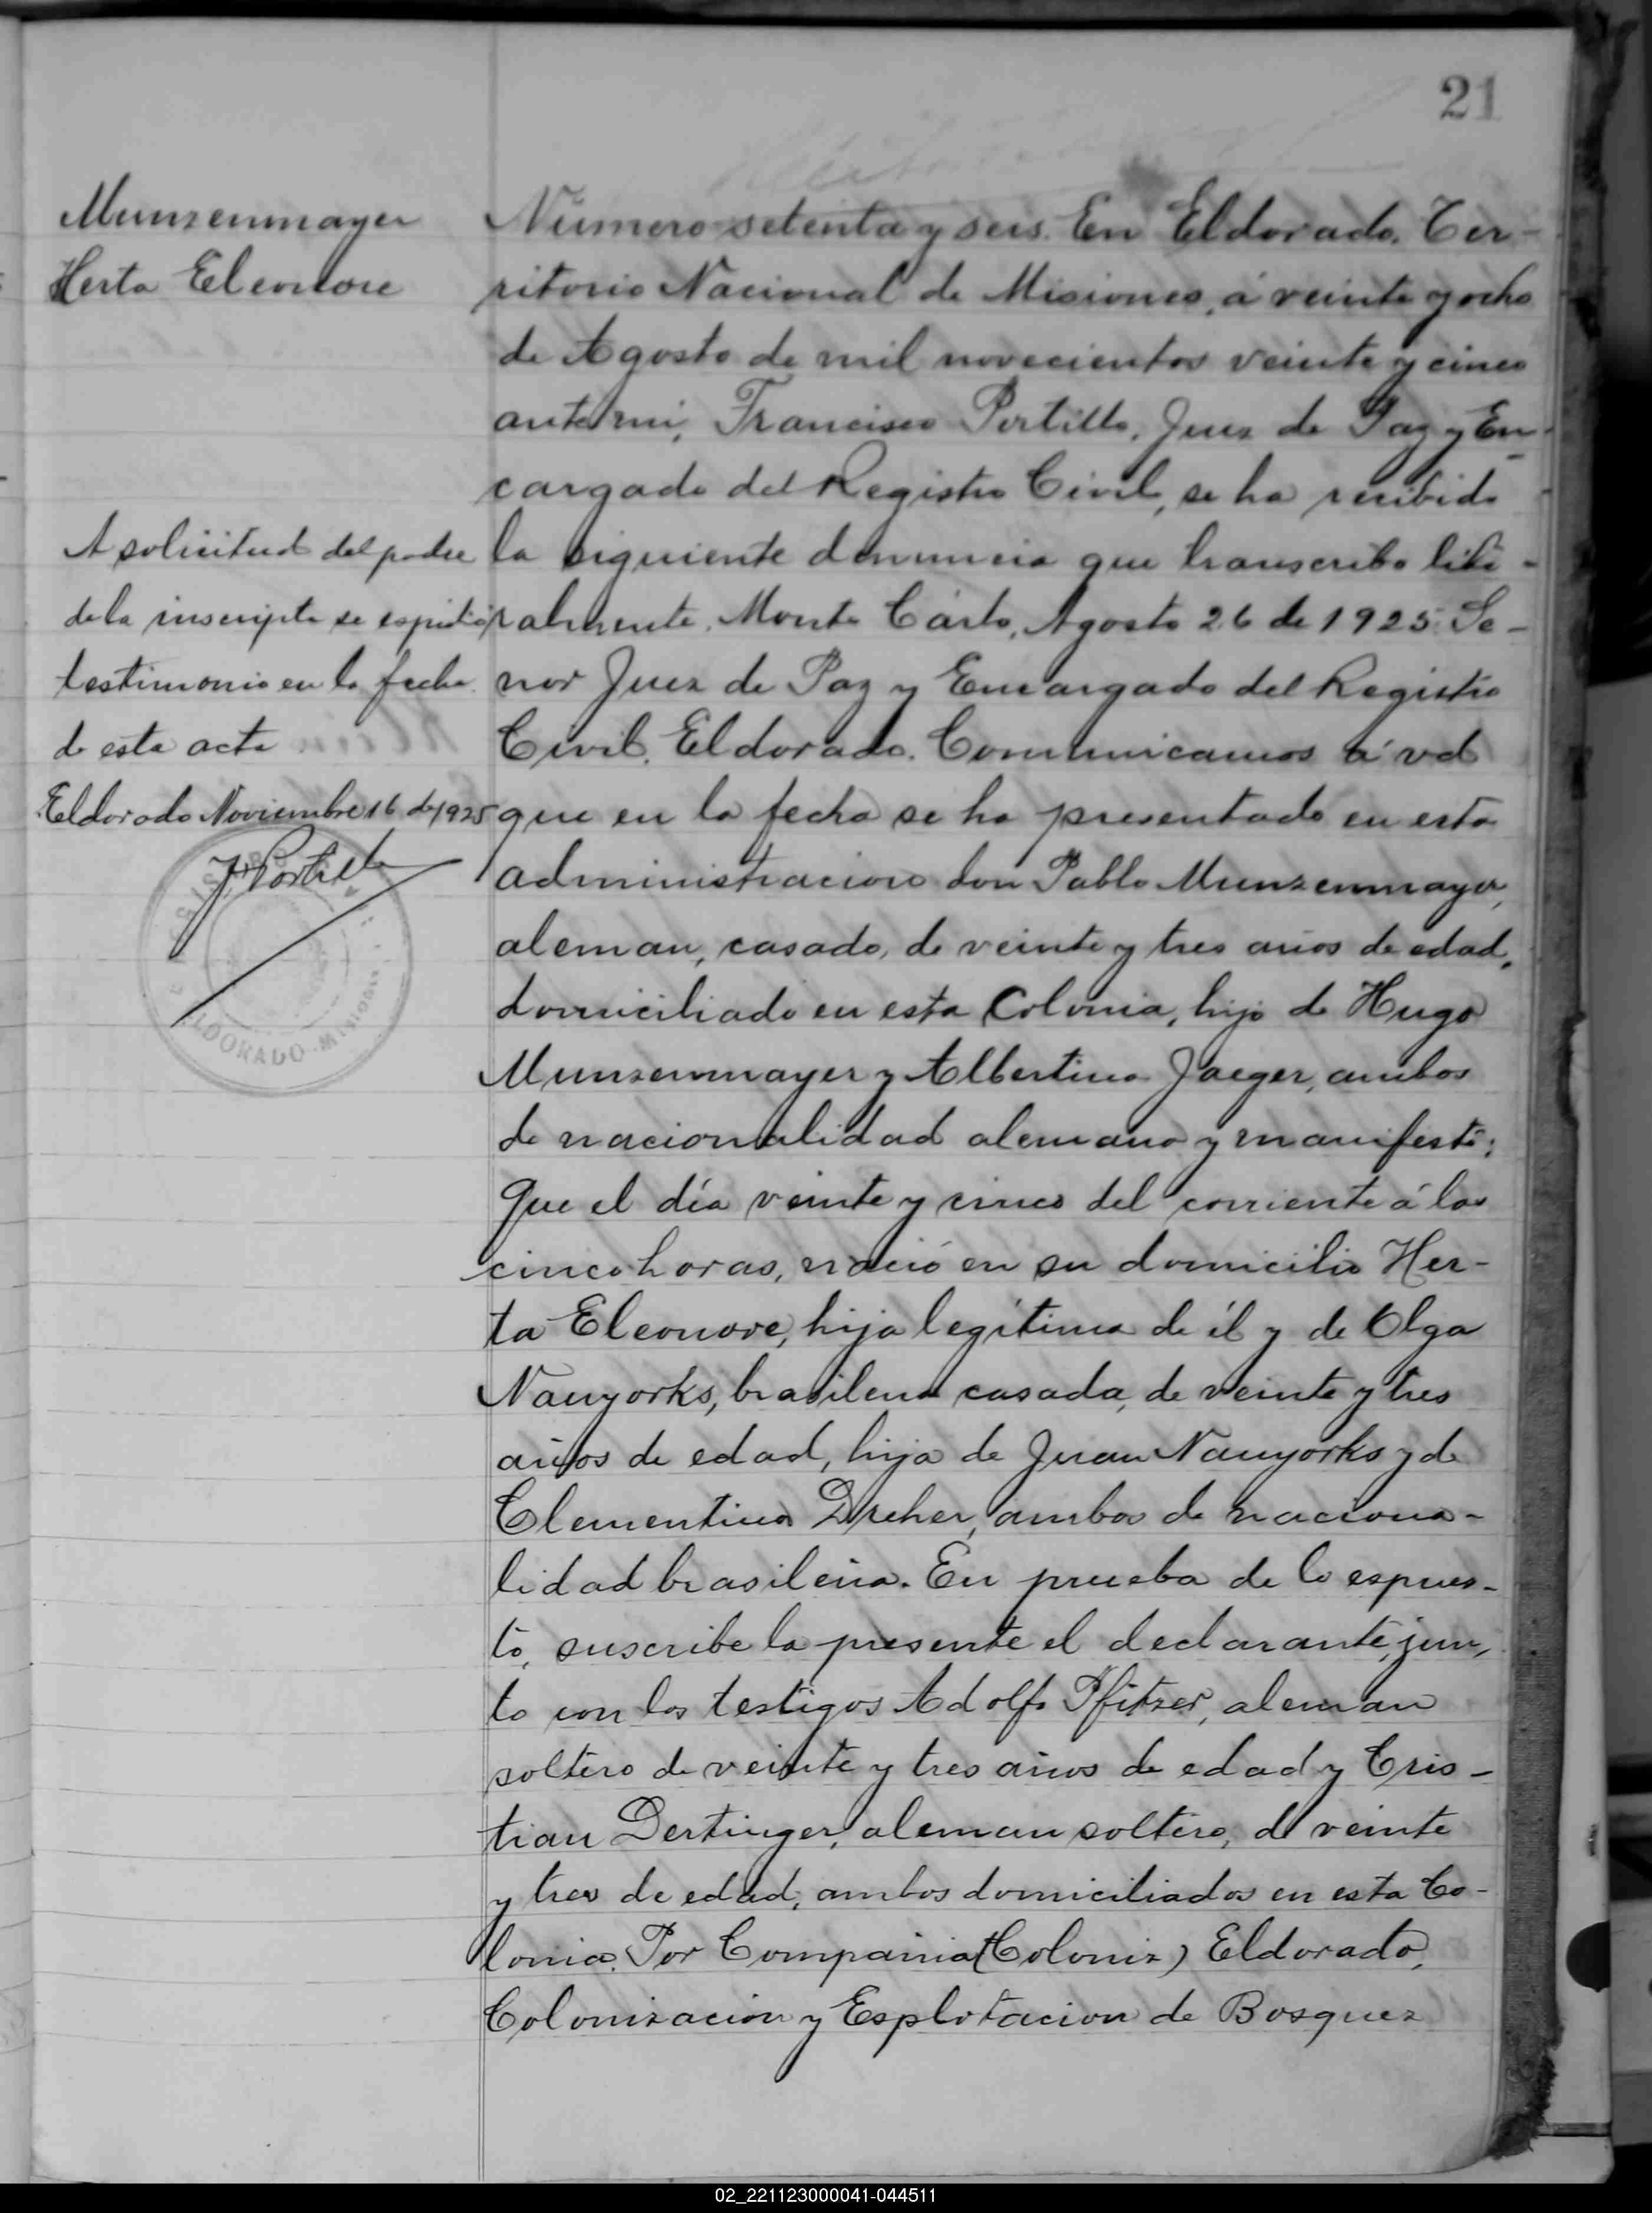 21
Munzenmayer
Herta Eleonore
Número setenta y seis. En Eldorado, Ter-
ritorio Nacional de Misiones, á veinte y ocho
de Agosto de mil novecientos veinte y cinco
ante mi, Francisco Portillo, Juez de Paz y En-
cargado del Registro Civil, se ha recibido
la siguiente denuncia que transcribo lite-
ralmente. Monte Carlo, Agosto 26 de 1925. Se-
ñor Juez de Paz y Encargado del Registro
Civil, Eldorado. Comunicamos á vd
que en la fecha se ha presentado en esta
administracion don Pablo Munzenmayer,
aleman, casado, de veinte y tres años de edad,
domiciliado en esta Colonia, hijo de Hugo
Munzenmayer y Albertina Jaeger, ambos
de nacionalidad alemana y manifestó:
Que el día veinte y cinco del corriente á las
cinco horas, nació en su domicilio Her-
ta Eleonore, hija legítima de él y de Olga
Nauyorks, brasilena casada, de veinte y tres
años de edad, hija de Juan Nauyorks y de
Clementina Dreher, ambos de naciona-
lidad brasileña. En prueba de lo espues-
to, suscribe la presente el declarante, jun-
to con los testigos Adolfo Pfitzer, aleman
soltero de veinte y tres años de edad y Cris-
tian Dertinger, aleman soltero, de veinte
y tres de edad, ambos domiciliados en esta Co-
lonia. Por Compañia (Coloniz) Eldorado,
Colonizacion y Esplotacion de Bosques
A solicitud del padre
de la inscripta se espidió
testimonio en la fecha
de esta acta
Eldorado Noviembre 16 de 1925
F. Portillo
ELDORADO - MISIONES
02_221123000041-044511